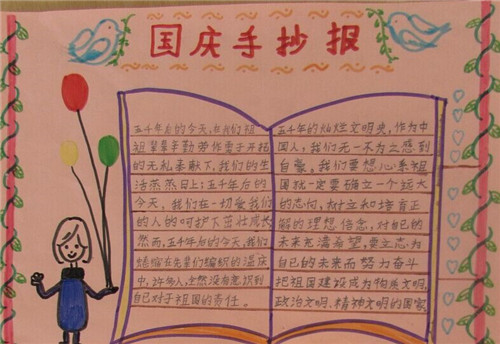 国庆手抄报
五千年后的今天,在我们祖
祖辈辈辛勤劳作勇于开拓
的无私奉献下,我们的生
活蒸蒸日上;五千年后的
今天,我们在一切爱我们
的人的呵护下茁壮成长
然而,五千年后的今天,我们
蜷缩在先辈们编织的温床
中,许多人,全然没有意识到
自己对于祖国的责任。
五千年的灿烂文明史,作为中
国人,我们无一不为之感到
自豪。我们要想心系祖
国就一定要确立一个远大
的志向,树立和培育正
解的理想信念,对自己的
未来充满希望,要立志为
自己的未来而努力奋斗
把祖国建设成为物质文明,
政治文明、精神文明的国家,